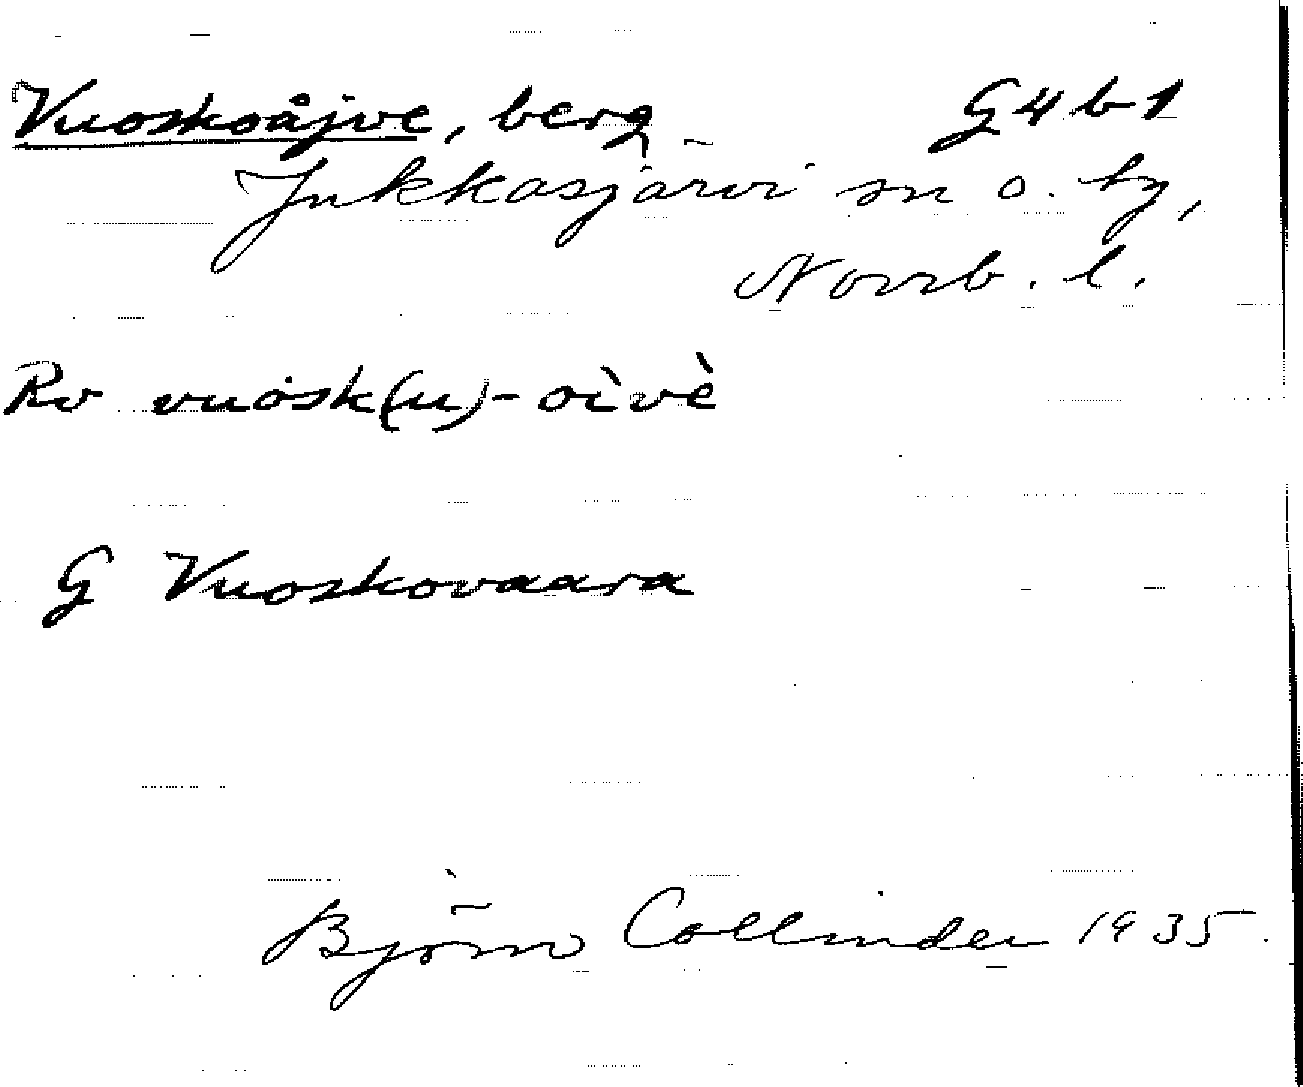 Vuoskoåjve, berg G4b1
Jukkasjärvi sn o. by,
Norrb. l.
Rv vuosk(u)-oìvè
G Vuoskovaara
Björn Collinder 1935.